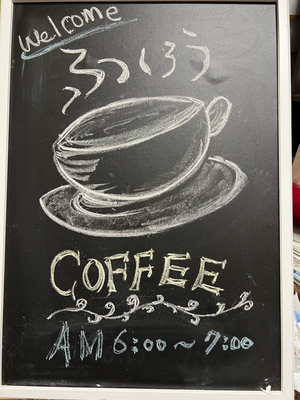 Welcome
ふっくろう
COFFEE
AM 6:00~7:00